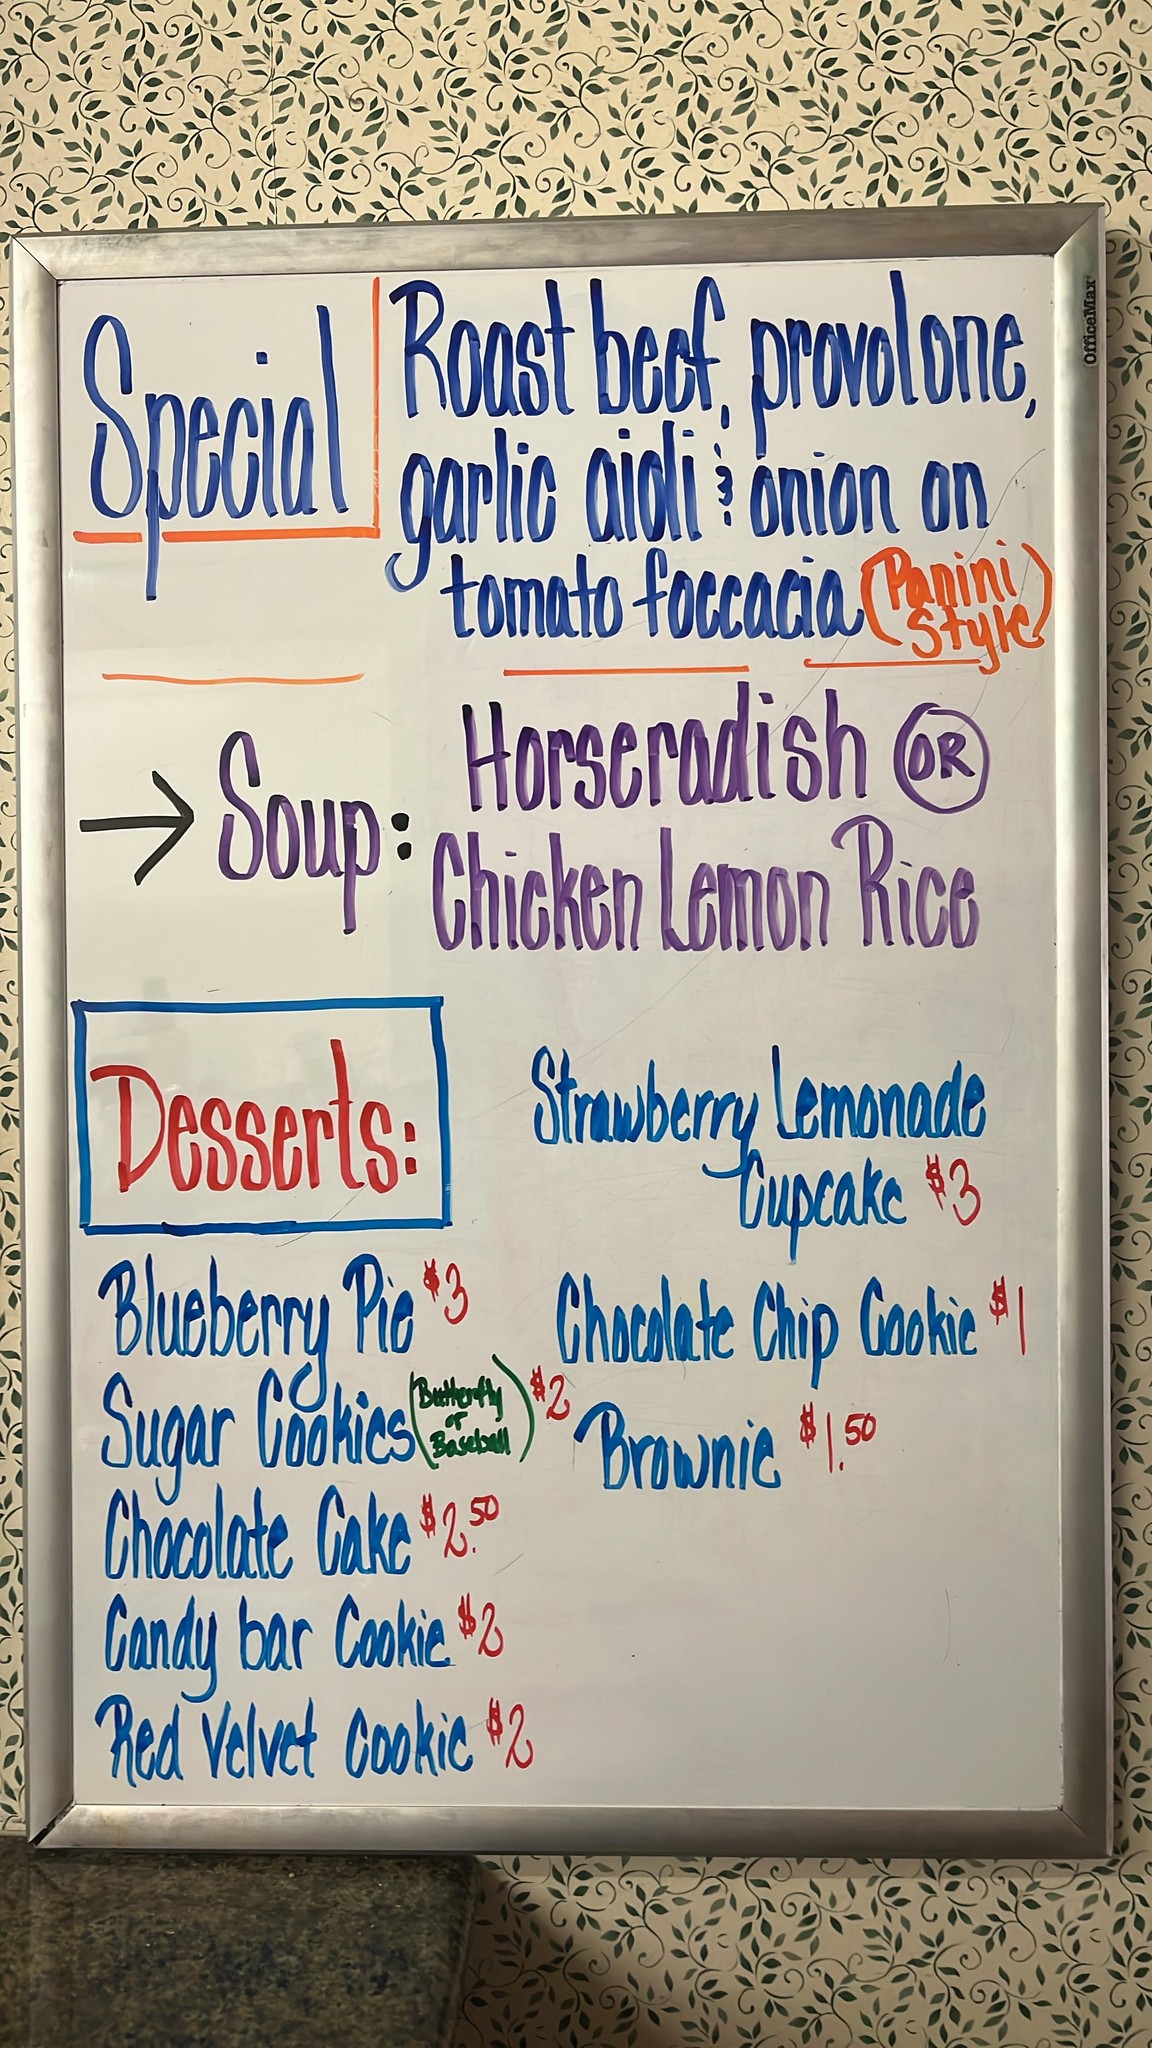 Special
Roast beef, provolone,
garlic aioli & onion on
tomato foccacia (Panini
Style)
→ Soup:
Horseradish OR
Chicken Lemon Rice
Desserts:
Blueberry Pie $3
Sugar Cookies (Butterfly or Baseball) $2
Chocolate Cake $2.50
Candy bar Cookie $2
Red Velvet Cookie $2
Strawberry Lemonade
Cupcake $3
Chocolate Chip Cookie $1
Brownie $1.50
OfficeMax